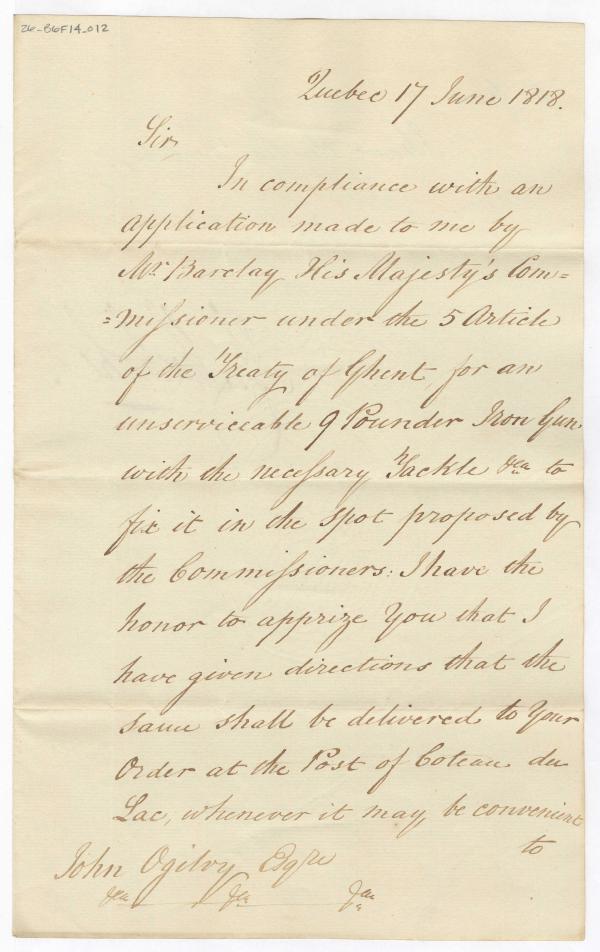 26-B6F14-012
Quebec 17 June 1818.
Sir,
In compliance with an
application made to me by
Mr. Barclay His Majesty's Com=
=missioner under the 5 Article
of the Treaty of Ghent, for an
unserviceable 9 Pounder Iron Gun
with the necessary Tackle &ca to
fix it in the spot proposed by
the Commissioners: I have the
honor to apprize You that I
have given directions that the
same shall be delivered to Your
Order at the Post of Coteau du
Lac, whenever it may be convenient
to
John Ogilvy Esqre
&ca &ca &ca